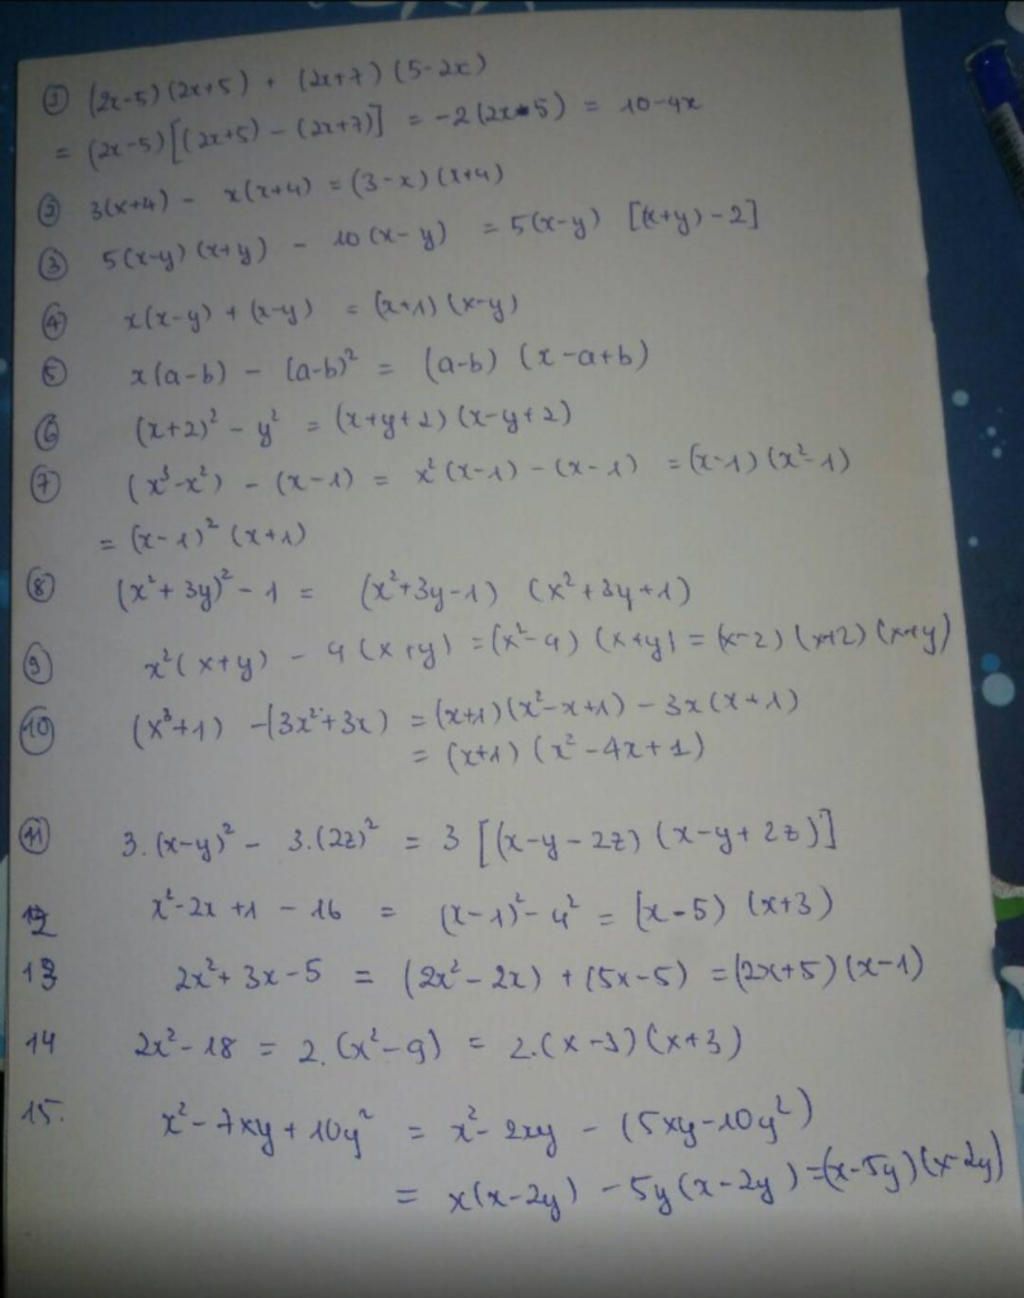 ① (2x-5)(2x+5) + (2x+7)(5-2x)
= (2x-5)[(2x+5) - (2x+7)] = -2(2x-5) = 10-4x
② 3(x+4) - x(x+4) = (3-x)(x+4)
③ 5(x-y)(x+y) - 10(x-y) = 5(x-y) [(x+y)-2]
④ x(x-y) + (x-y) = (x+1)(x-y)
⑤ x(a-b) - (a-b)² = (a-b) (x-a+b)
⑥ (x+2)² - y² = (x+y+2)(x-y+2)
⑦ (x³-x²) - (x-1) = x²(x-1) - (x-1) = (x-1)(x²-1)
= (x-1)² (x+1)
⑧ (x²+3y)² - 1 = (x²+3y-1) (x²+3y+1)
⑨ x²(x+y) - 4(x+y) = (x²-4)(x+y) = (x-2)(x+2)(x+y)
⑩ (x³+1) - (3x²+3x) = (x+1)(x²-x+1) - 3x(x+1)
= (x+1)(x²-4x+1)
⑪ 3.(x-y)² - 3.(2z)² = 3 [(x-y-2z)(x-y+2z)]
12 x²-2x+1-16 = (x-1)²-4² = (x-5) (x+3)
13 2x²+3x-5 = (2x²-2x) + (5x-5) = (2x+5)(x-1)
14 2x²-18 = 2.(x²-9) = 2.(x-3)(x+3)
15. x²-7xy+10y² = x²-2xy - (5xy-10y²)
= x(x-2y) - 5y(x-2y) = (x-5y)(x-2y)